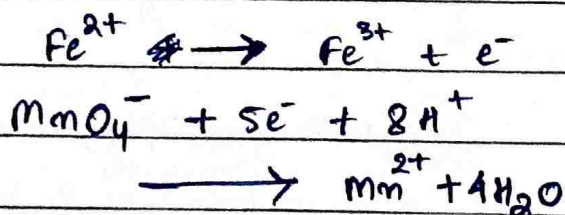 Fe²⁺ ⟶ Fe³⁺ + e⁻
MnO₄⁻ + 5e⁻ + 8H⁺
⟶ Mn²⁺ + 4H₂O